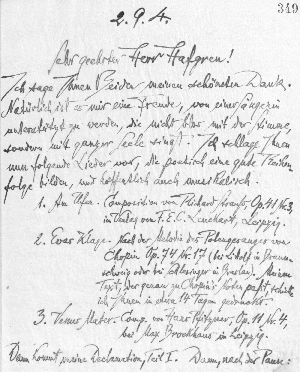 349
2. 9. 4.
Sehr geehrter Herr Hafgren!
Ich sage Ihnen Beiden meinen schönsten Dank.
Natürlich ist es mir eine Freude, von einer Sängerin
unterstützt zu werden, die nicht blos mit der Stimme,
sondern mit ganzer Seele singt. Ich schlage Ihnen
nun folgende Lieder vor, die poetisch eine gute Reihen-
folge bilden, und hoffentlich auch musikalisch.
1. Am Ufer. Composition von Richard Strauss, Op. 41 Nr. 3,
im Verlag von F. E. C. Leuckart, Leipzig.
2. Evas Klage. Nach der Melodie des Polengesanges von
Chopin Op. 74 Nr. 17 (bei Litolff in Braun-
schweig oder bei Schlesinger in Breslau). Meinen
Text, der genau zu Chopin's Noten passt, schicke
ich Ihnen in etwa 14 Tagen gedruckt.
3. Venus Mater. Comp. von Hans Pfitzner, Op. 11 Nr. 4,
bei Max Brockhaus in Leipzig.
Dann kommt meine Declamation, Teil I. Dann, nach der Pause: